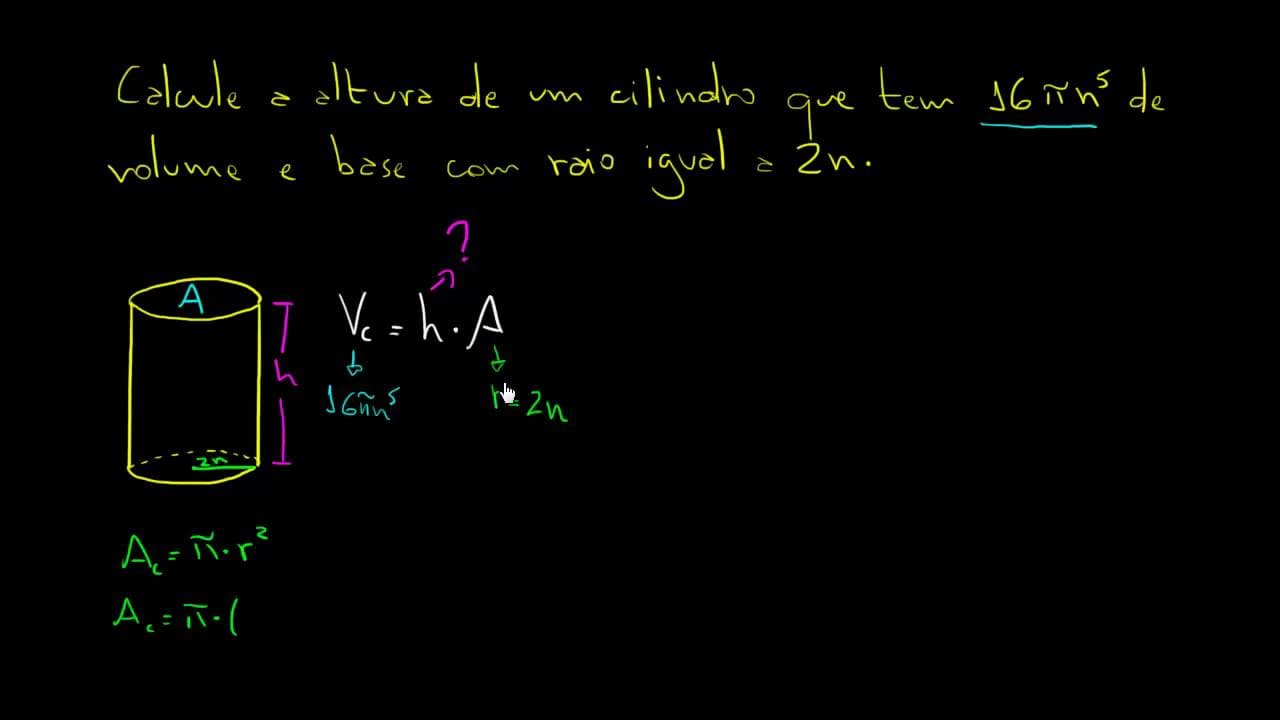 Calcule a altura de um cilindro que tem 16πn⁵ de
volume e base com raio igual a 2n.
?
A
V꜀ = h · A
h
16πn⁵
r = 2n
2n
A꜀ = π · r²
A꜀ = π · (